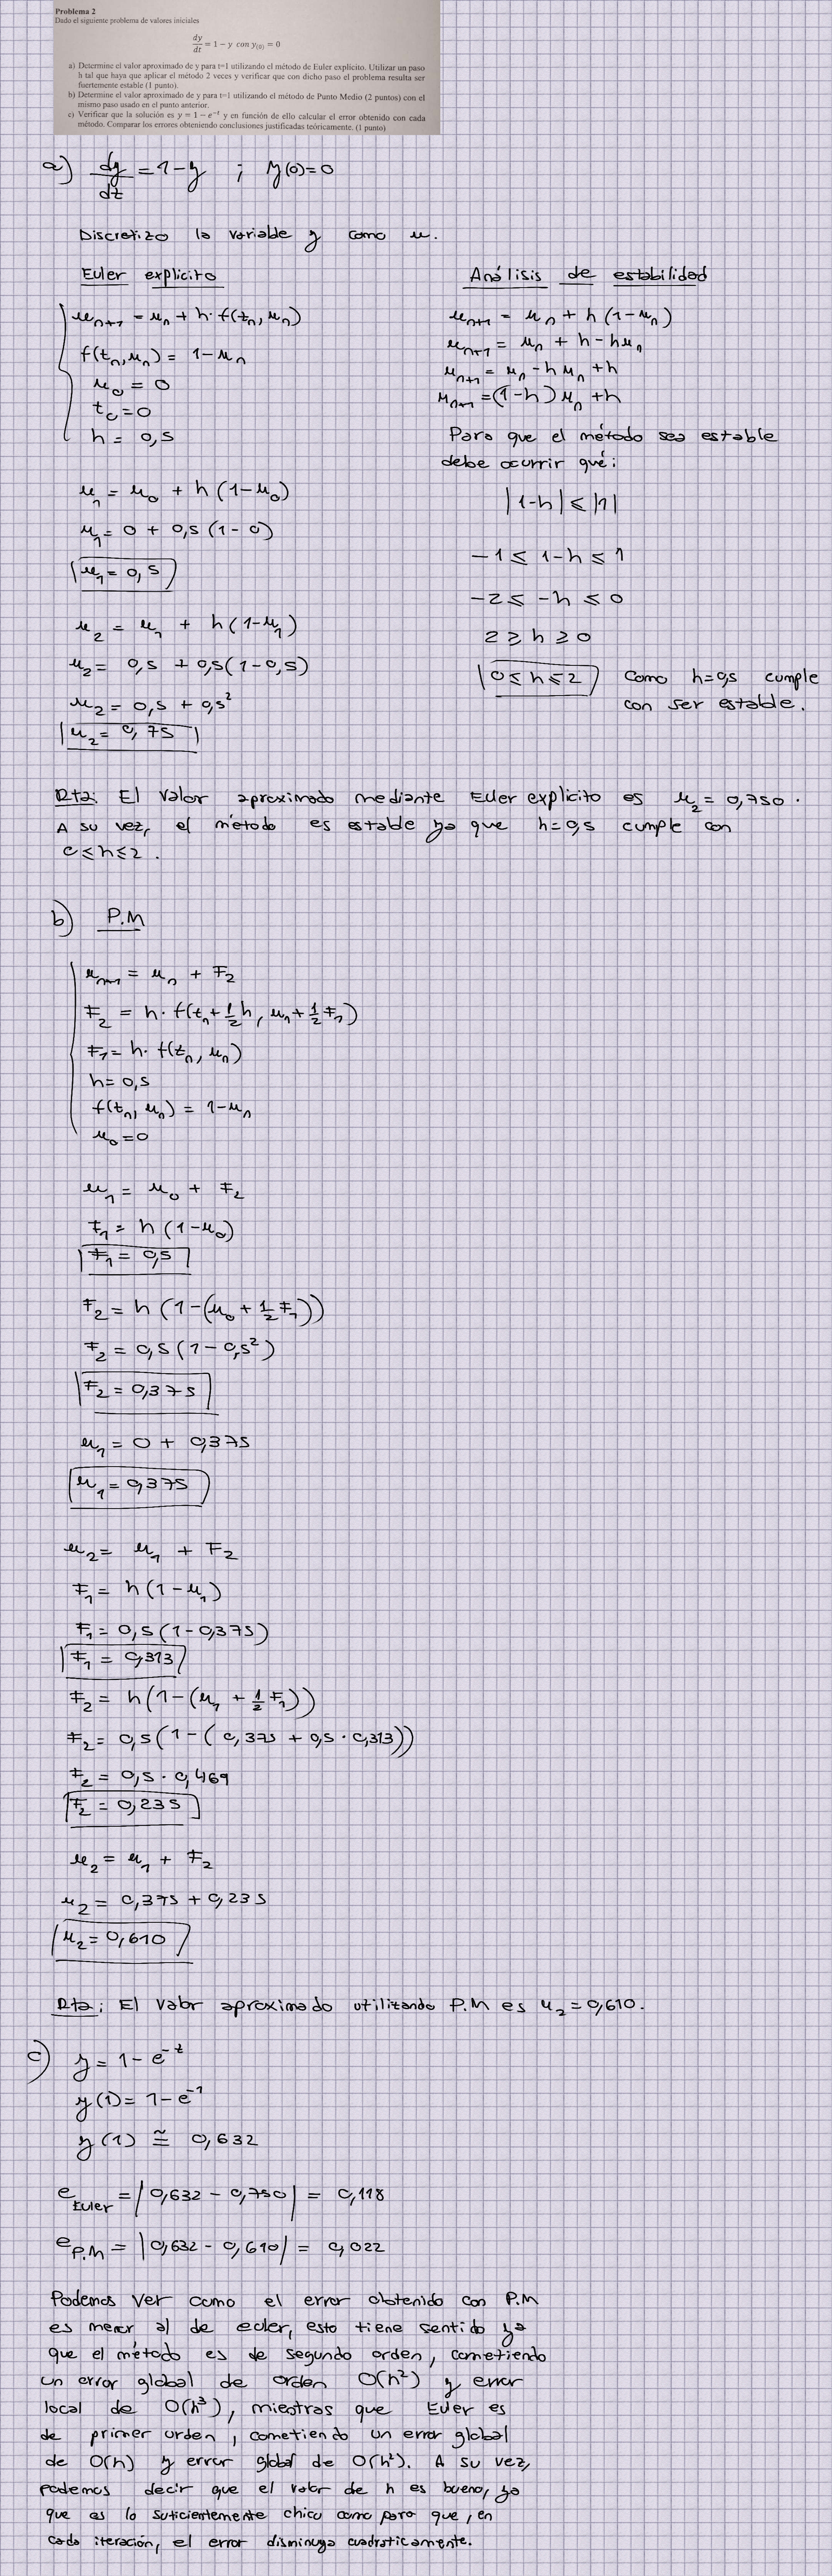 Problema 2
Dado el siguiente problema de valores iniciales
dy/dt = 1 − y con y(0) = 0
a) Determine el valor aproximado de y para t=1 utilizando el método de Euler explícito. Utilizar un paso
h tal que haya que aplicar el método 2 veces y verificar que con dicho paso el problema resulta ser
fuertemente estable (1 punto).
b) Determine el valor aproximado de y para t=1 utilizando el método de Punto Medio (2 puntos) con el
mismo paso usado en el punto anterior.
c) Verificar que la solución es y = 1 − e^−t y en función de ello calcular el error obtenido con cada
método. Comparar los errores obteniendo conclusiones justificadas teóricamente. (1 punto)
a) dy/dt = 1-y ; y(0)=0
Discretizo la variable y como u.
Euler explícito
u_n+1 = u_n + h· f(t_n, u_n)
f(t_n, u_n) = 1-u_n
u_0 = 0
t_0 = 0
h = 0,5
u_1 = u_0 + h (1-u_0)
u_1 = 0 + 0,5 (1-0)
u_1 = 0,5
u_2 = u_1 + h (1-u_1)
u_2 = 0,5 + 0,5(1-0,5)
u_2 = 0,5 + 0,5²
u_2 = 0,75
Análisis de estabilidad
u_n+1 = u_n + h (1-u_n)
u_n+1 = u_n + h - hu_n
u_n+1 = u_n - h u_n + h
u_n+1 = (1-h) u_n + h
Para que el método sea estable
debe ocurrir qué:
|1-h| ≤ |1|
-1 ≤ 1-h ≤ 1
-2 ≤ -h ≤ 0
2 ≥ h ≥ 0
0 ≤ h ≤ 2 Como h=0,5 cumple
con ser estable.
Rta: El valor aproximado mediante Euler explícito es u_2 = 0,750.
A su vez, el método es estable ya que h=0,5 cumple con
0 ≤ h ≤ 2.
b) P.M
u_n+1 = u_n + F_2
F_2 = h· f(t_n + 1/2 h, u_n + 1/2 F_1)
F_1 = h· f(t_n, u_n)
h = 0,5
f(t_n, u_n) = 1-u_n
u_0 = 0
u_1 = u_0 + F_2
F_1 = h (1-u_0)
F_1 = 0,5
F_2 = h (1-(u_0 + 1/2 F_1))
F_2 = 0,5 (1-0,5²)
F_2 = 0,375
u_1 = 0 + 0,375
u_1 = 0,375
u_2 = u_1 + F_2
F_1 = h(1-u_1)
F_1 = 0,5 (1-0,375)
F_1 = 0,313
F_2 = h(1-(u_1 + 1/2 F_1))
F_2 = 0,5(1-(0,375 + 0,5 · 0,313))
F_2 = 0,5 · 0,469
F_2 = 0,235
u_2 = u_1 + F_2
u_2 = 0,375 + 0,235
u_2 = 0,610
Rta: El valor aproximado utilizando P.M es u_2 = 0,610.
c) y = 1 - e^-t
y(1) = 1 - e^-1
y(1) ≅ 0,632
e_Euler = |0,632 - 0,750| = 0,118
e_P.M = |0,632 - 0,610| = 0,022
Podemos ver como el error obtenido con P.M
es menor al de euler, esto tiene sentido ya
que el método es de segundo orden, cometiendo
un error global de orden O(h²) y error
local de O(h³), mientras que Euler es
de primer orden, cometiendo un error global
de O(h) y error global de O(h²). A su vez,
podemos decir que el valor de h es bueno, ya
que es lo suficientemente chico como para que, en
cada iteración, el error disminuya cuadraticamente.